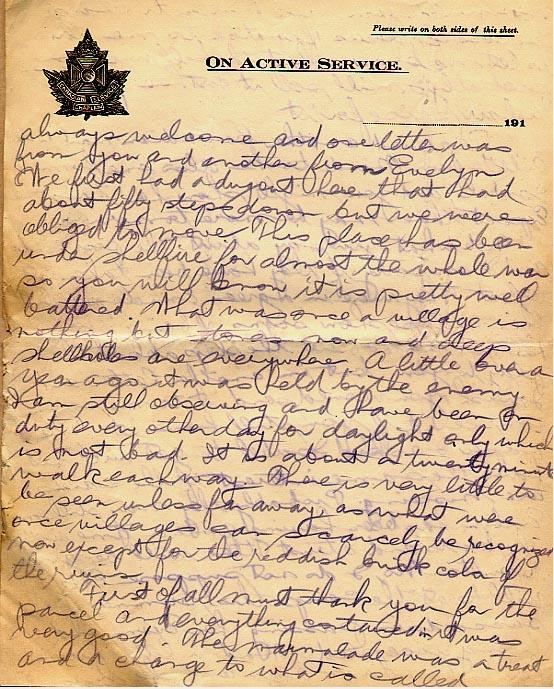 Please write on both sides of this sheet.
ON ACTIVE SERVICE.
CANADIAN
CHAPLAIN
191
always welcome and one letter was
from you and another from Evelyn
We first had a dugout here that had
about fifty steps down but we were
obliged to move. This place has been
under shellfire for almost the whole war
so you will know it is pretty well
battered. What was once a village is
nothing but stones now and deep
shellholes are everywhere. A little over a
year ago it was held by the enemy.
I am still observing and have been on
duty every other day for daylight only which
is not bad. It is about a twenty minute
walk each way. There is very little to
be seen unless far away, as what were
once villages can scarcely be recognized
now except for the reddish brick color of
the ruins.
First of all must thank you for the
parcel and everything contained in it was
very good. The marmalade was a treat
and a change to what is called